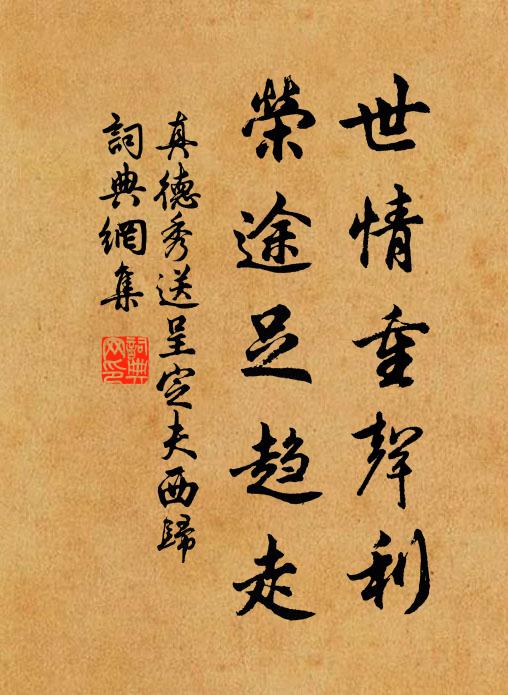 世情重聲利
榮途足趨走
真德秀送呈定夫西歸
詞典網集
詞典網印